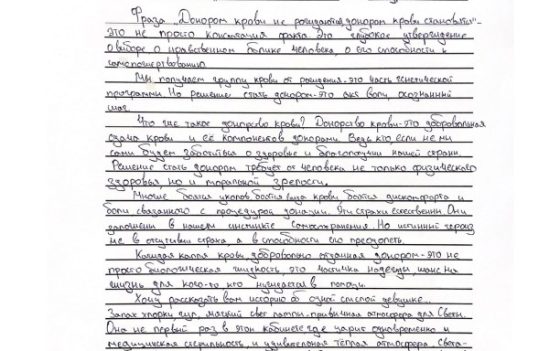 Фраза "Донором крови не рождаются, донором крови становятся" -
это не просто констатация факта это глубокое утверждение
о выборе о нравственном облике человека, о его способности к
самопожертвованию.
Мы получаем группу крови от рождения - это часть генетической
программы. Но решение стать донором - это акт воли, осознанный
шаг.
Что же такое донорство крови? Донорство крови - это добровольная
сдача крови и её компонентов донорами. Ведь кто если не мы
сами будем заботиться о здоровье и благополучии нашей страны.
Решение стать донором требует от человека не только физического
здоровья, но и моральной зрелости.
Многие боятся уколов, боятся вида крови, боятся дискомфорта и
боли связанного с процедурой донации. Эти страхи естественны. Они
заложены в нашем инстинкте самосохранения. Но истинный героизм
не в отсутствии страха, а в способности его преодолеть.
Каждая капля крови, добровольно отданная донором - это не
просто биологическая жидкость, это частичка надежды, шанс на
жизнь для кого-то, кто нуждается в помощи.
Хочу рассказать вам историю об одной смелой девушке...
Запах хлорки, гул, мягкий свет лампы - привычная атмосфера для Светы.
Она не первый раз в этом кабинете, где царит одновременно и
медицинская стерильность, и удивительная тёплая атмосфера. Света -